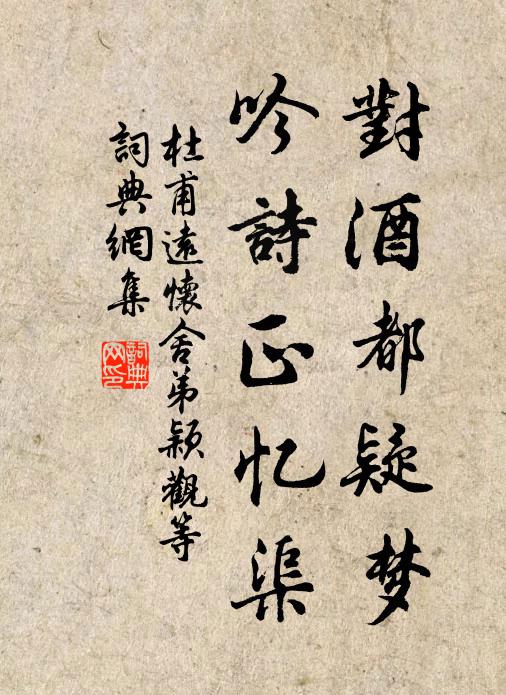 對酒都疑梦
吟詩正忆渠
杜甫遠懷舍弟穎觀等
詞典網集
詞典网印